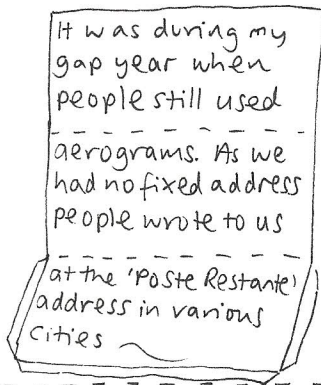 It was during my
gap year when
people still used
aerograms. As we
had no fixed address
people wrote to us
at the 'Poste Restante'
address in various
cities